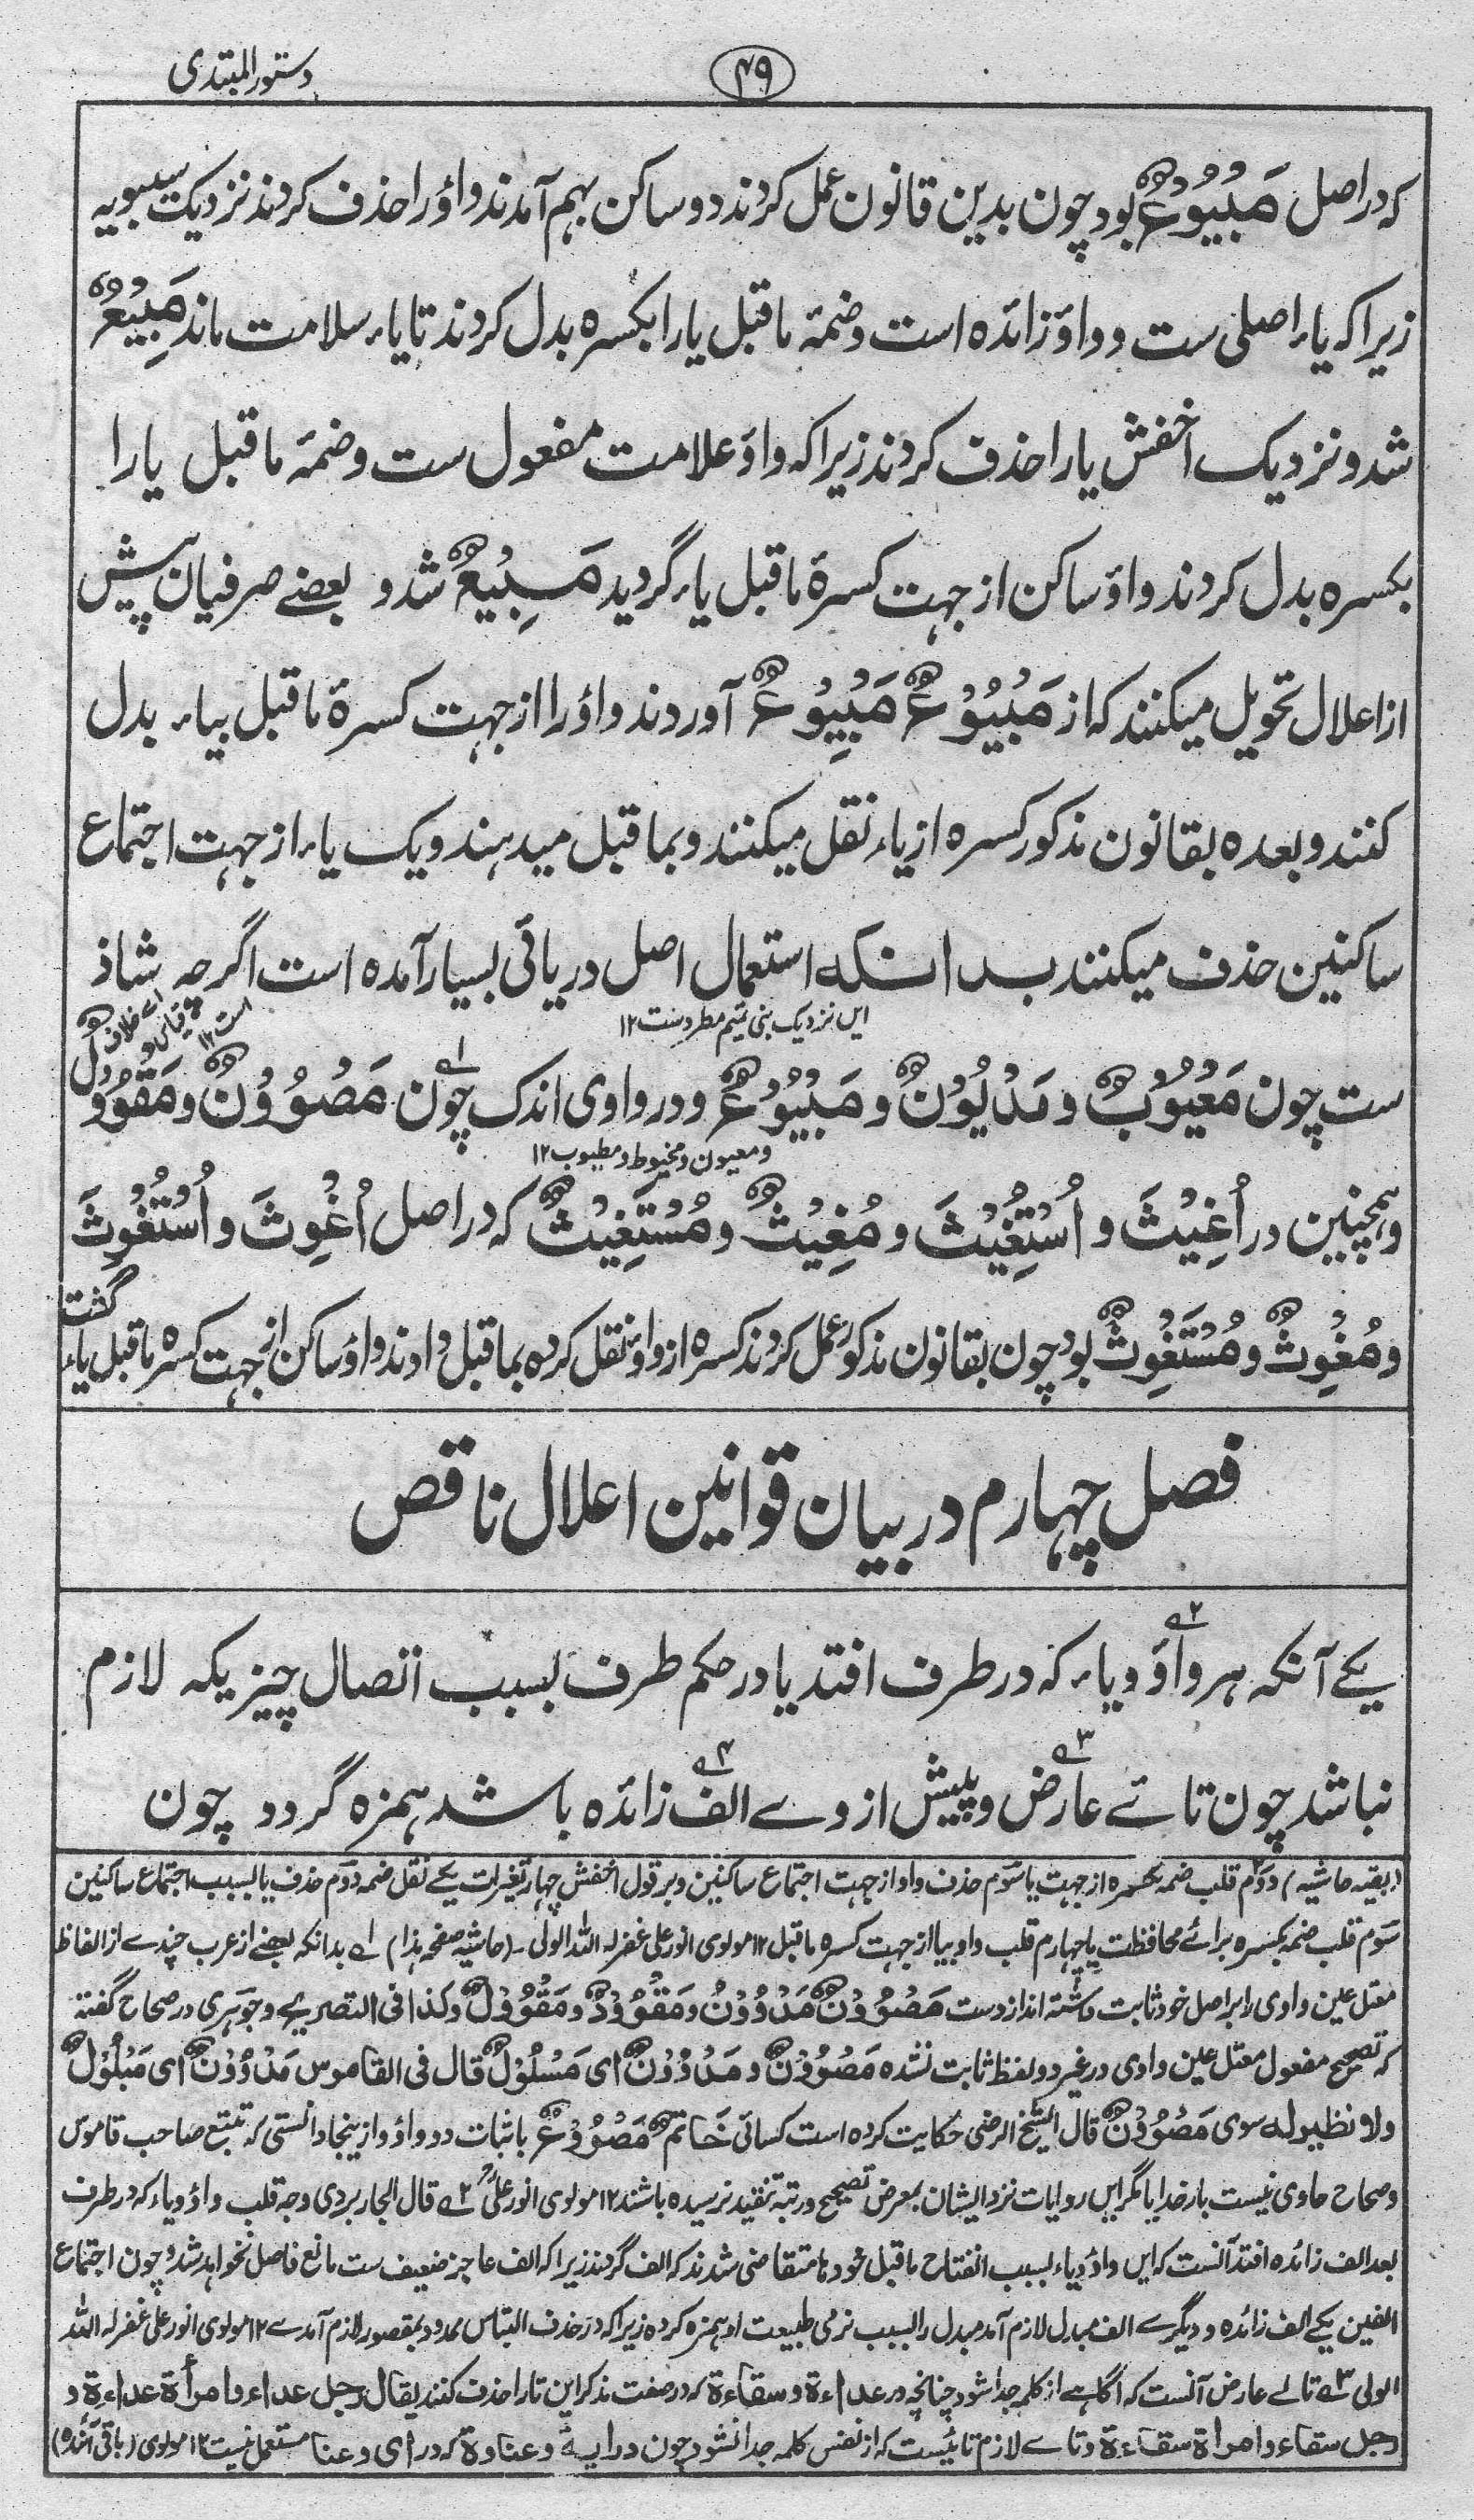 دستور المبتدی
۴۹
که در اصل مَبْیُوْعٌ بود چون بدین قانون عمل کردند دو ساکن بهم آمدند واؤ را حذف کردند نزدیک سیبویه
زیرا که یاء اصلی ست و واؤ زائده است و ضمهٔ ماقبل یا را بکسره بدل کردند تا یاء سلامت ماند مَبِیْعٌ
شد و نزدیک اخفش یا را حذف کردند زیرا که واؤ علامت مفعول ست و ضمهٔ ماقبل یا را
بکسره بدل کردند واؤ ساکن از جهت کسرهٔ ماقبل یاء گردید مَبِیْعٌ شد و بعضے صرفیان پیش
از اعلال تحویل میکنند که از مَبْیُوْعٌ مَبْیِوْعٌ آوردند واؤ را از جهت کسرهٔ ماقبل بیاء بدل
کنند و بعده بقانون مذکور کسره از یاء نقل میکنند و بماقبل میدهند و یک یاء از جهت اجتماع
ساکنین حذف میکنند بدانکه استعمال اصل در یائی بسیار آمده است اگرچه شاذ
این نزدیک بنی تمیم مطردست ۱۲
اے خلاف قیاس است ۱۲
ست چون مَعْیُوْبٌ و مَدْیُوْنٌ و مَبْیُوْعٌ و در واوی اندک چون مَصْوُوْنٌ و مَقْوُوْلٌ
و معیون و مخیوط و مطیوب ۱۲
و همچنین در اُغِیْثَ و اُسْتُغِیْثَ و مُغِیْثٌ و مُسْتَغِیْثٌ که در اصل اُغْوِثَ و اُسْتُغْوِثَ
و مُغْوِثٌ و مُسْتَغْوِثٌ بود چون بقانون مذکور عمل کردند کسره از واؤ نقل کرده بماقبل دادند واؤ ساکن از جهت کسره ماقبل یاء گشت
فصل چهارم در بیان قوانین اعلال ناقص
یکے آنکه هر واؤ و یاء که در طرف افتد یا در حکم طرف بسبب اتصال چیزیکه لازم
نباشد چون تائے عارض و پیش از وے الف زائده باشد همزه گردد چون
(بقیه حاشیه) دوم قلب ضمه بکسره از جهت یا سوم حذف واو از جهت اجتماع ساکنین و بر قول اخفش چهار تغیرات یکے نقل ضمه دوم حذف یا بسبب اجتماع ساکنین
سوم قلب ضمه بکسره برائے محافظت یا چهارم قلب واو بیا از جهت کسره ماقبل ۱۲ مولوی انور علی غفر له الله الولی۔ (حاشیه صفحه هذا) ۱ے بدانکه بعضے از عرب چندے از الفاظ
معتل عین واوی را بر اصل خود ثابت داشته اند از دست مَصْوُوْنٌ مَدْوُوْنٌ و مَقْوُوْدٌ و مَقْوُوْلٌ و کذا فی التصریح و جوهری در صحاح گفته
که تصحیح مفعول معتل عین واوی در غیر دو لفظ ثابت نشده مَصْوُوْنٌ و مَدْوُوْنٌ ای مَسْلُوْلٌ قال فی القاموس مَدْوُوْنٌ ای مَبْلُوْلٌ
ولا نظیر له سوی مَصْوُوْنٌ قال الشیخ الرضی حکایت کرده است کسائی خَاتَمٌ مَصْوُوْغٌ باثبات دو واؤ و از ینجا دانستی که تتبع صاحب قاموس
و صحاح حاوی نیست بار خدایا مگر این روایات نزد ایشان بمعرض تصحیح و رتبه تنقید نرسیده باشند ۱۲ مولوی انور علی ۲ے قال الجاربردی وجه قلب واؤ و یاء که در طرف
بعد الف زائده افتد آنست که این واؤ و یاء بسبب انفتاح ماقبل خودها متقاضی شدند که الف گردند زیرا که الف حاجز ضعیف ست مانع فاصل نخواهد شد و چون اجتماع
الفین یکے الف زائده و دیگرے الف مبدل لازم آمد مبدل را بسبب نرمی طبیعت او همزه کرده زیرا که در حذف التباس ممدود بمقصور لازم آمدے ۱۲ مولوی انور علی غفر له الله
الولی ۳ے تائے عارض آنست که گاهے از کلمه جدا شود چنانچه در عداءة و سقاءة که در صفت مذکر این تا را حذف کنند یقال رجل عداء و امرأة عداءة و
رجل سقاء و امراة سقاءة و تاے لازم تائیست که از نفس کلمه جدا نشود چون درایة و عناوة که درای و عنا مستعمل نیست ۱۲ مولوی (باقی آئنده)